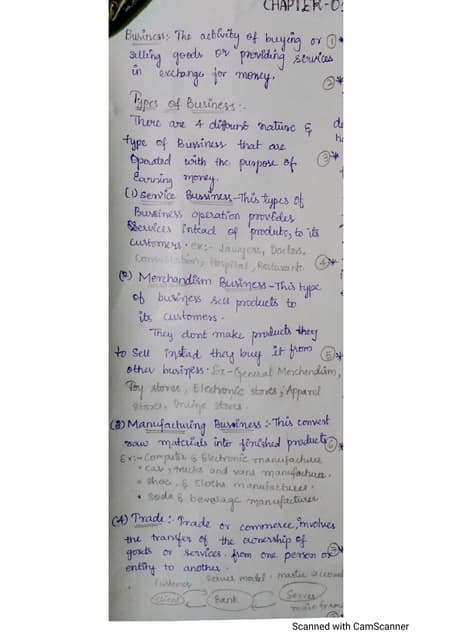 CHAPTER-0
Business:- The activity of buying or ①*
selling goods or providing services
in exchange for money. ②*
Types of Business:-
There are 4 different nature &
type of Bussiness that are
Oparated with the purpose of ③*
Earning money.
(1) Service Bussiness - This types of
Bussiness operation provides
Services intead of products, to its
customers. ex:- Lawyers, Doctors, ④*
Consultation, Hospital, Restuarant.
(2) Merchandism Business - This type
of business sell products to
its customers.
They dont make products they
to sell instead they buy it from ⑤*
other business. Ex - General Merchendism,
Toy stores, Electronic stores, Apparel
stores, Online stores.
(3) Manufactuing Bussiness :- This convert
raw materials into finished products
Ex:- Computer & Electronic manufacture
• Car, trucks and vans manufacture.
• Shoe, & Cloths manufactures.
• Soda & bevarage manufacturer
(4) Trade:- Trade or commerce, involves
the transfer of the ownership of
goods or services from one person or
entity to another.
Customer Server model.
Client Bank Server
Scanned with CamScanner